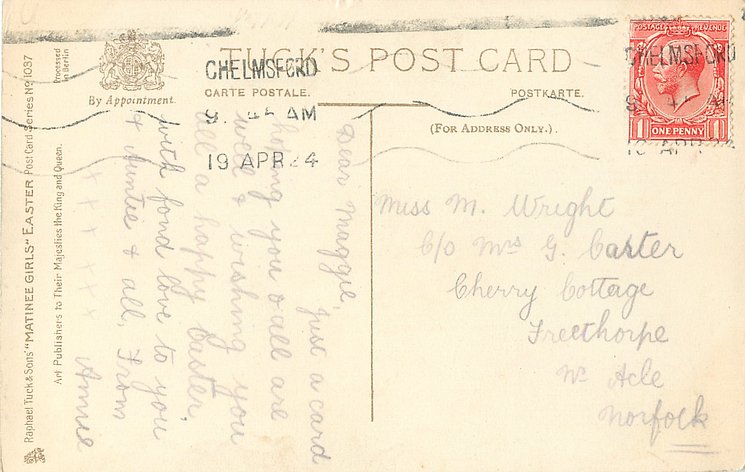 TUCK'S POST CARD
CARTE POSTALE.
POSTKARTE.
(FOR ADDRESS ONLY.)
By Appointment.
CHELMSFORD
AM
19 APR 24
POSTAGE REVENUE
CHELMSFORD
1 ONE PENNY 1
Raphael Tuck & Sons' "MATINEE GIRLS" EASTER Post Card Series No 1037
Art Publishers to Their Majesties the King and Queen.
Processed
in Berlin
Dear Maggie,
Just a card
hoping you & all are
well & wishing you
all a happy Easter,
with fond love to you
& Auntie & all, From
x x x x x x Annie
Miss M. Wright
C/o Mrs G. Carter
Cherry Cottage
Freethorpe
Nr Acle
Norfolk